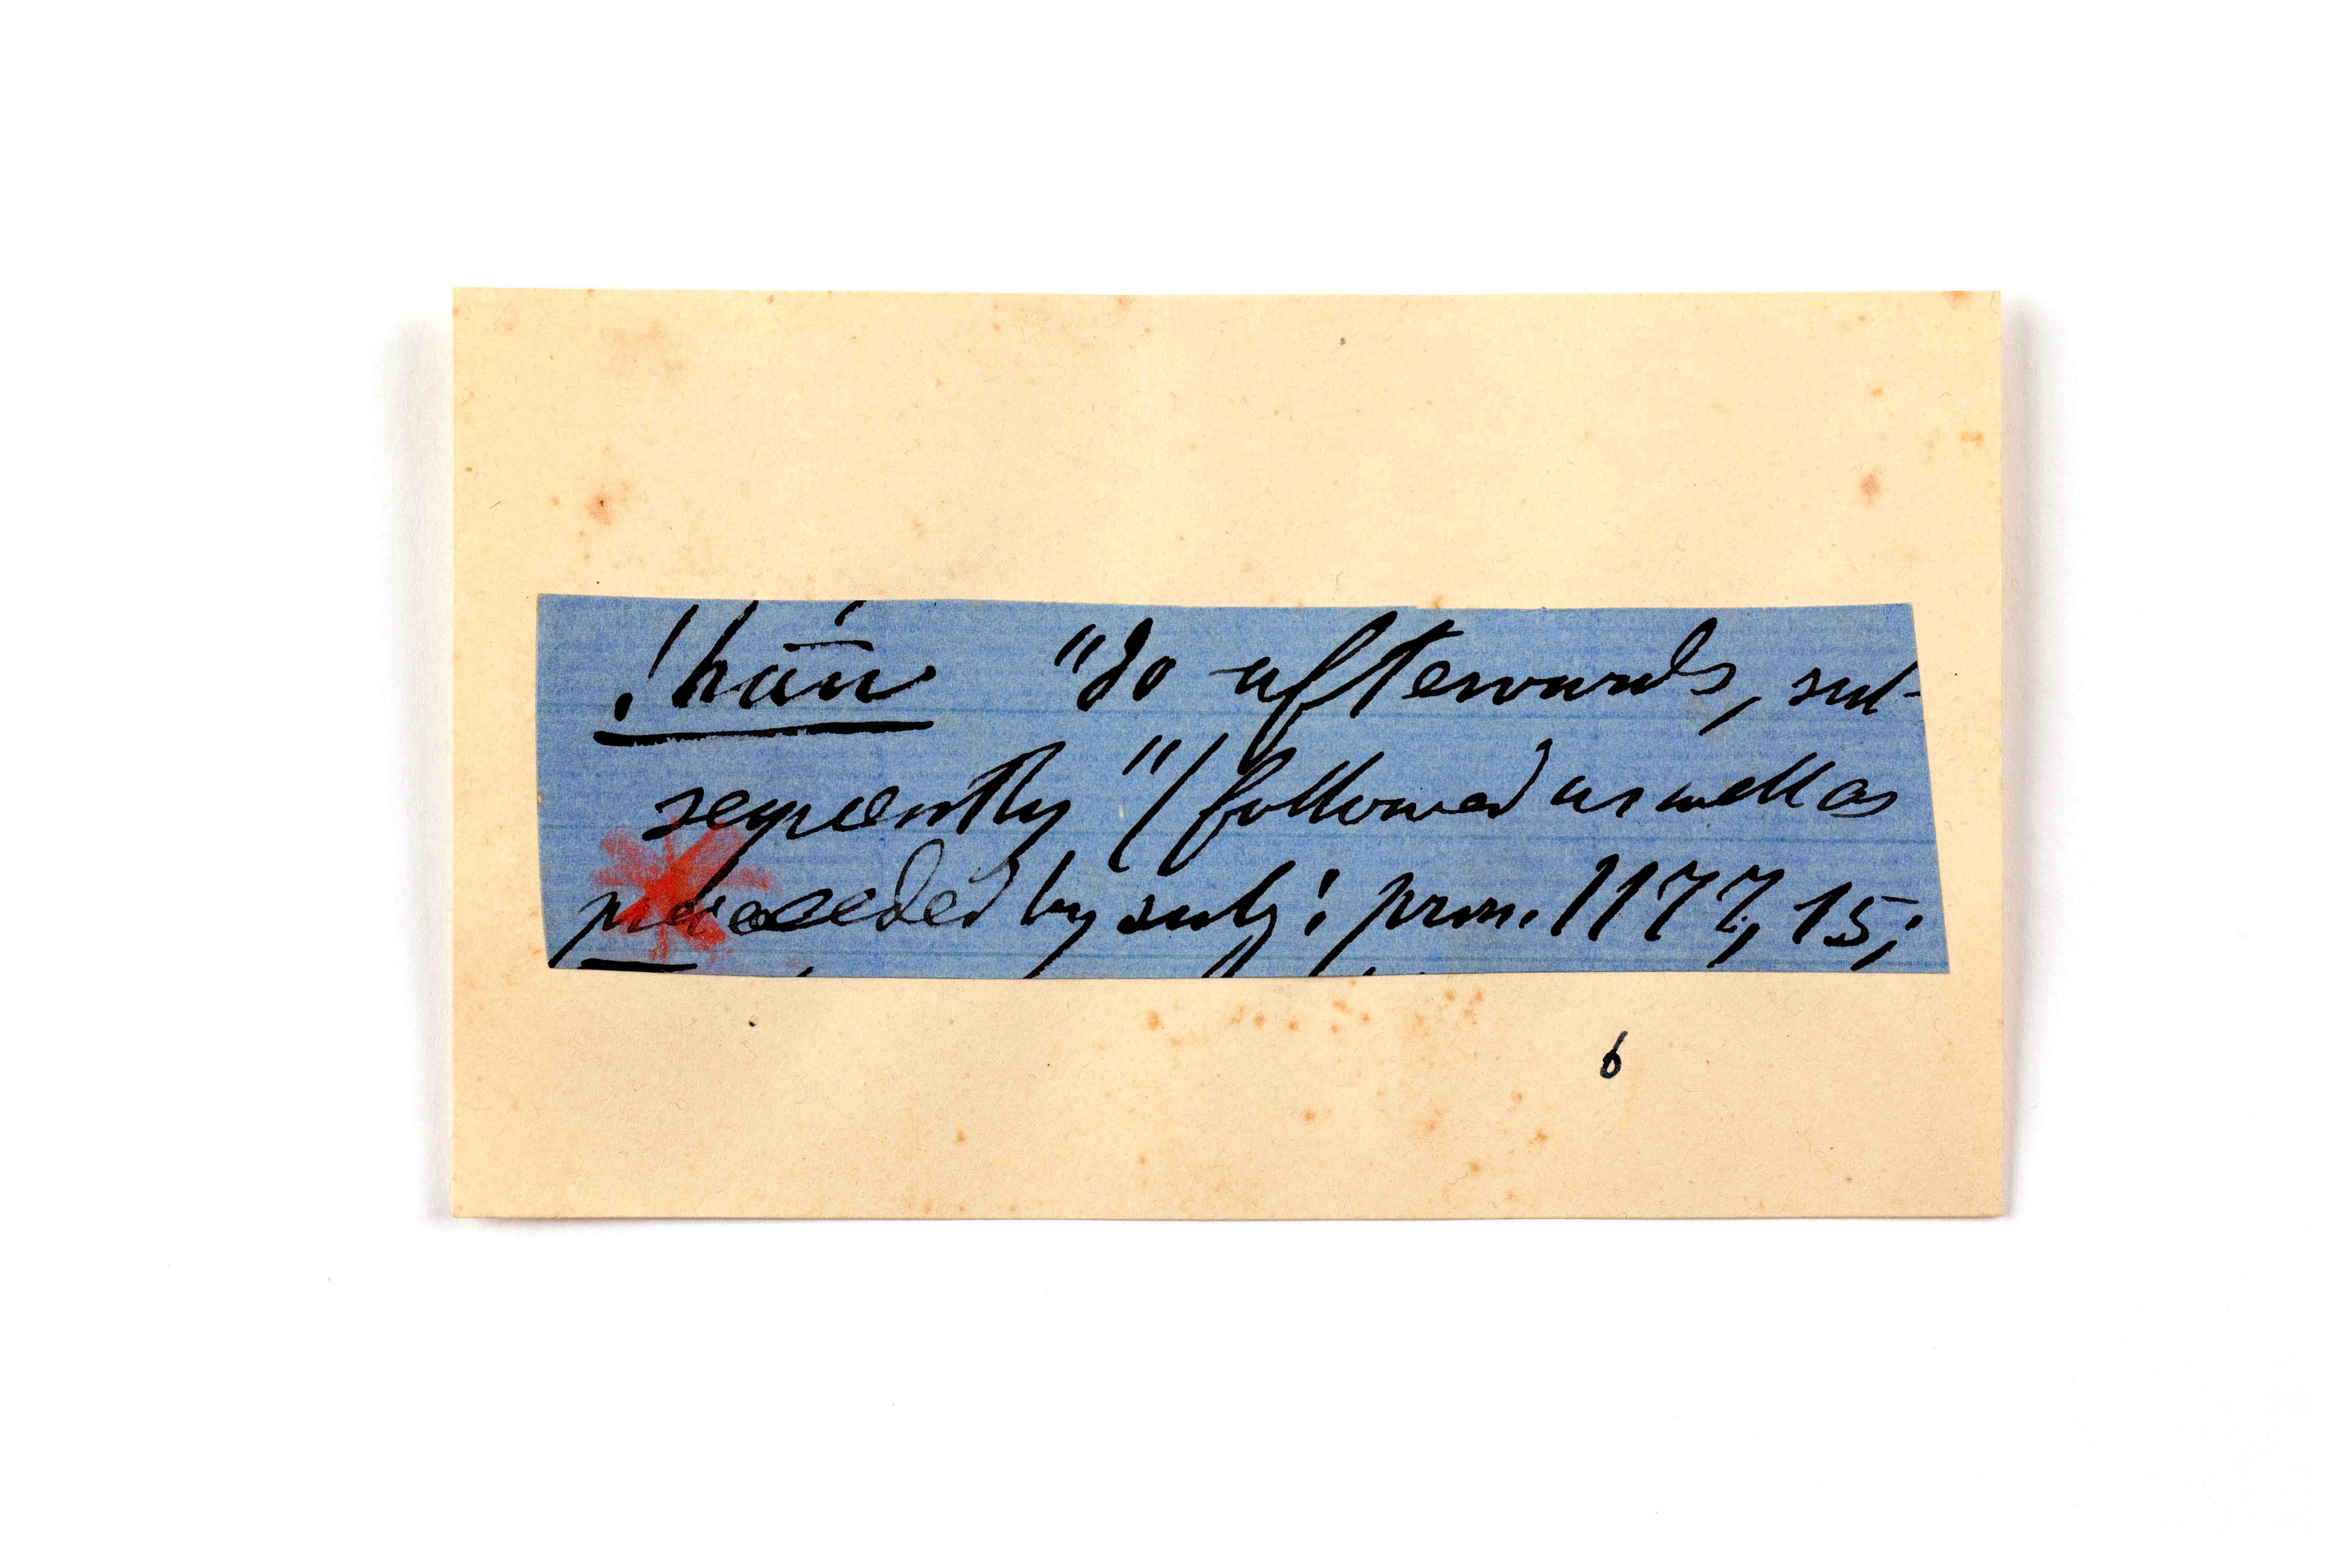 !hań "do afterwards, sub-
sequently" (followed as well as
preceeded by subj: pron. 1177, 15;
6